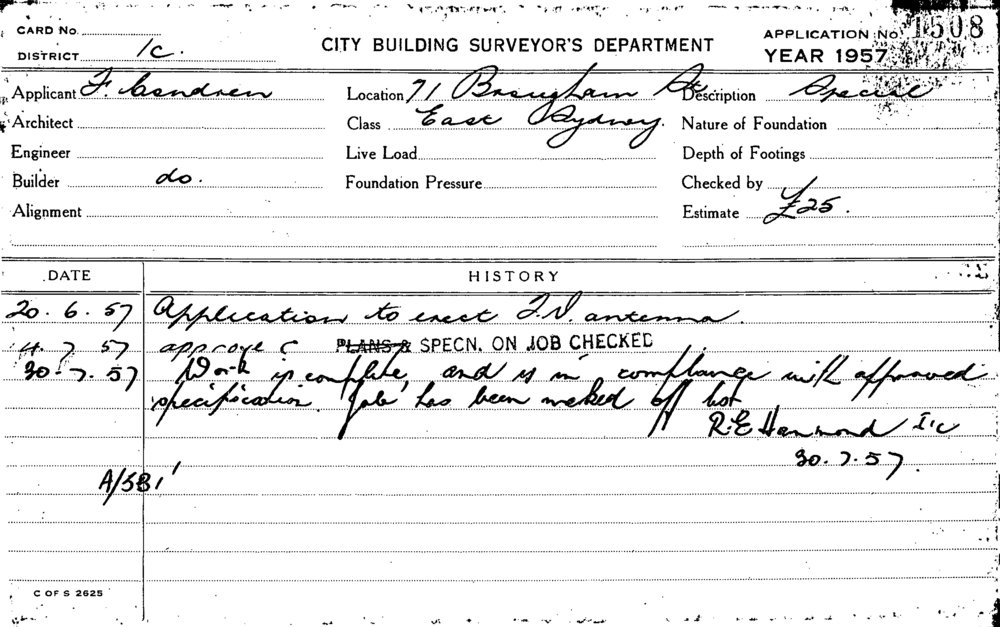 CARD No.
DISTRICT 1C.
CITY BUILDING SURVEYOR'S DEPARTMENT
APPLICATION No. 1508
YEAR 1957
Applicant F. Condren Location 71 Brougham St. Description Special
Architect Class East Sydney. Nature of Foundation
Engineer Live Load Depth of Footings
Builder do. Foundation Pressure Checked by
Alignment Estimate £25.
DATE HISTORY
20. 6. 57 Application to erect T.V. antenna.
4. 7. 57 approve C PLANS & SPECN. ON JOB CHECKED
30. 7. 57 Work is complete and is in compliance with approved
specification. Job has been marked off list
R.E Hammond I/C
30. 7. 57.
A/SB1
C OF S 2625